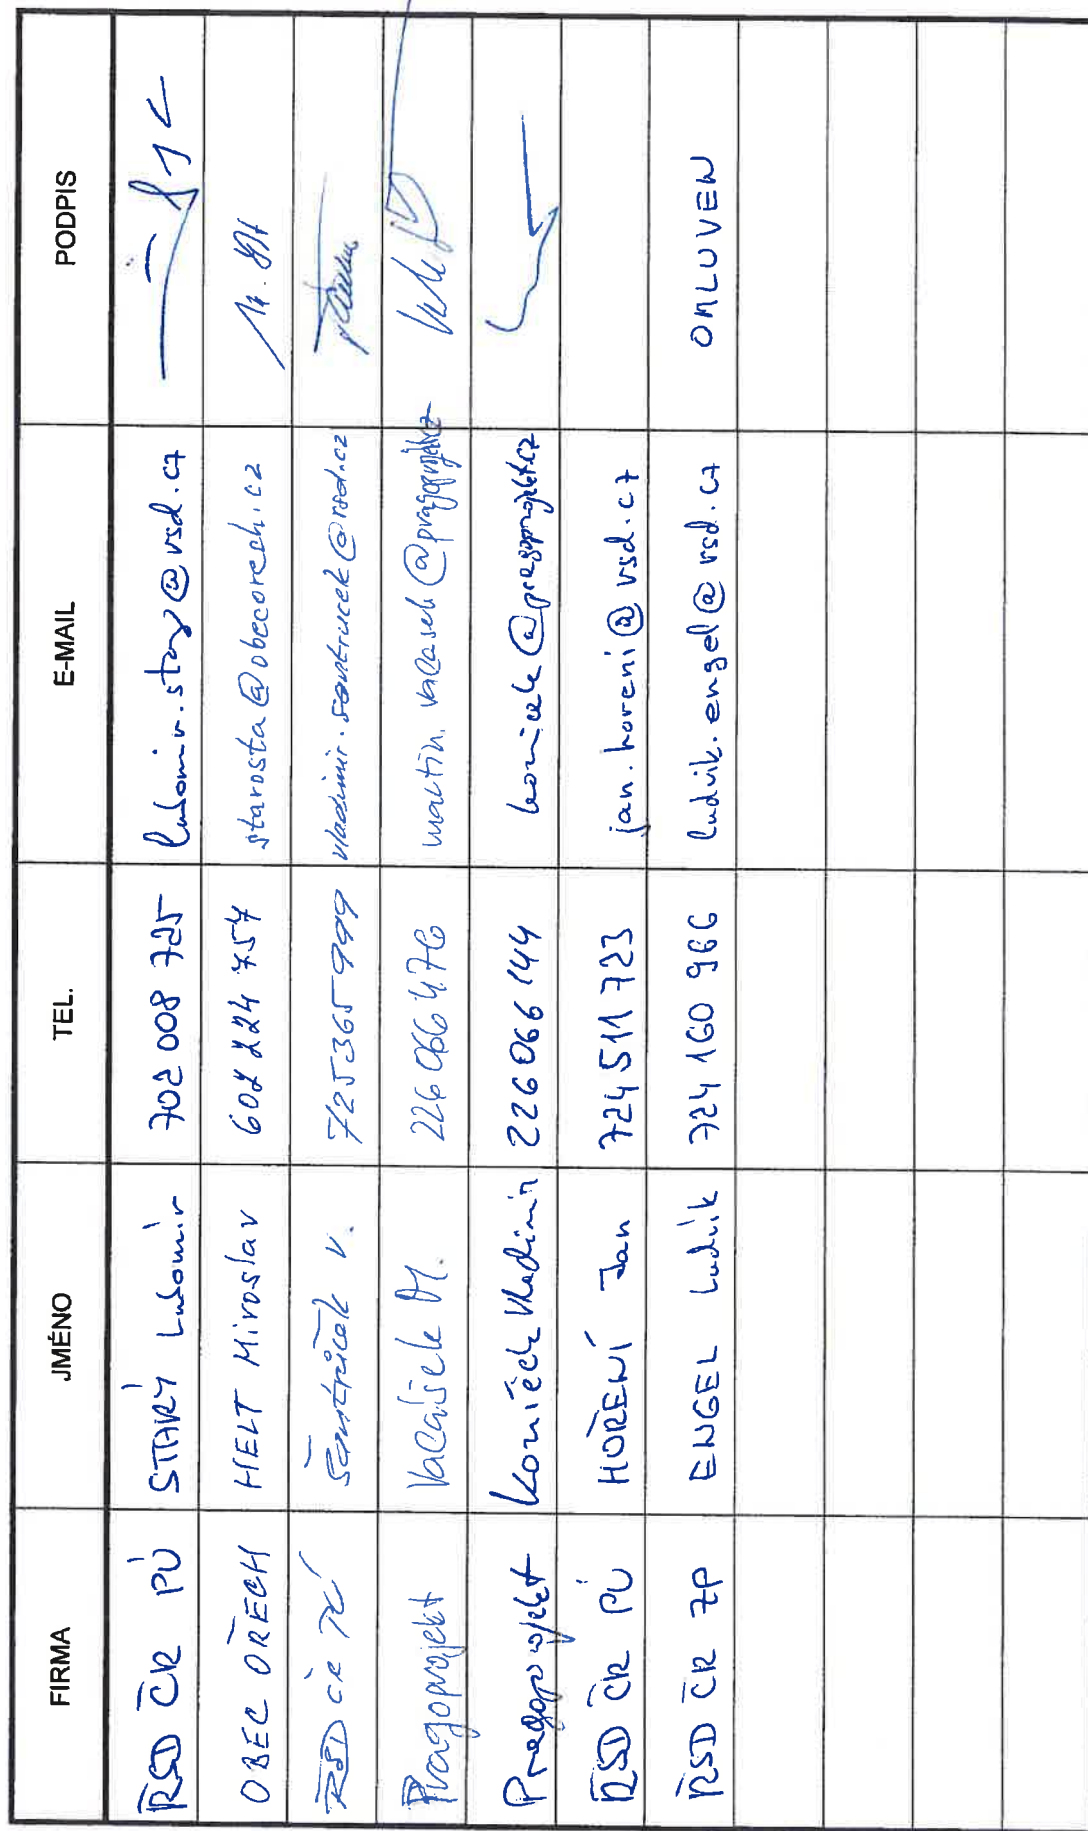 FIRMA JMÉNO TEL. E-MAIL PODPIS
ŘSD ČR PÚ STARÝ Lubomír 702 008 725 lubomir.stary@rsd.cz
OBEC OŘECH HELT Miroslav 602 224 757 starosta@obecorech.cz
ŘSD ČR Šantrůček V. 725365999 vladimir.santrucek@rsd.cz
Pragoprojekt Valášek M. 226 066 476 martin.valasek@pragoprojekt.cz
Pragoprojekt Koníček Vladimír 226 066 144 konicek@pragoprojekt.cz
ŘSD ČR PÚ HOŘENÍ Jan 724 511 723 jan.horeni@rsd.cz
ŘSD ČR ZP ENGEL Ludvík 724 160 966 ludvik.engel@rsd.cz OMLUVEN